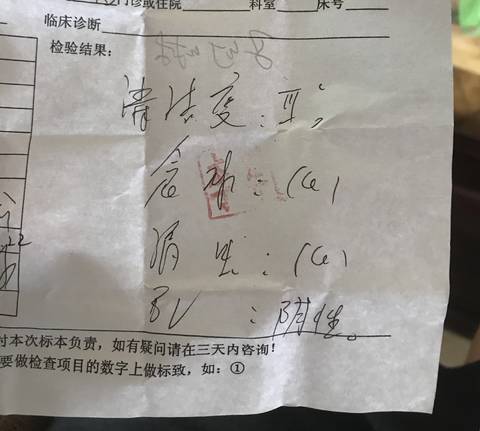 门诊或住院 科室 床号
临床诊断
检验结果：
清洁度：
念珠：
滴虫：
BV：阴性。
对本次标本负责，如有疑问请在三天内咨询！
要做检查项目的数字上做标致，如：①